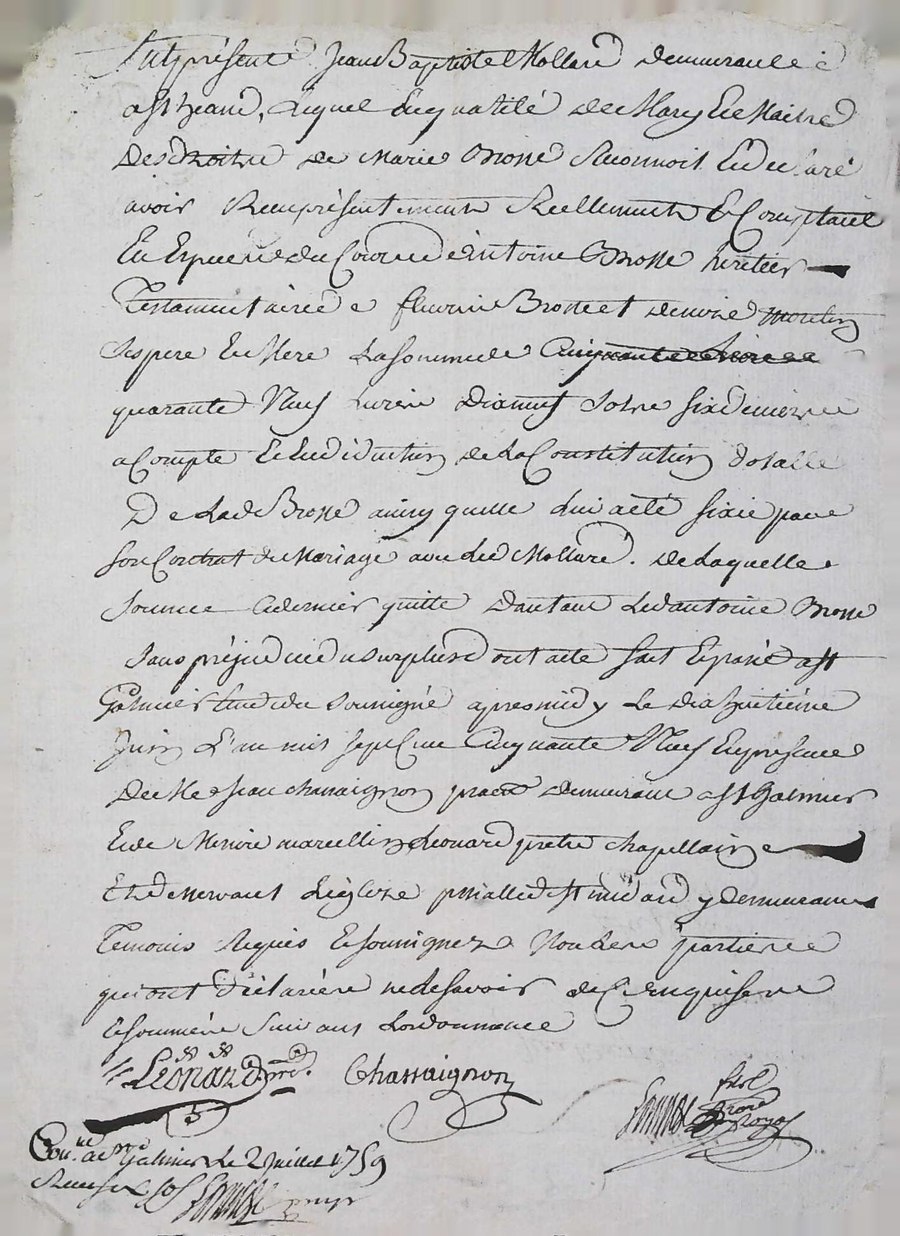 fut présent Jean Baptiste Mollard demeurant
a St jean, lequel en qualité de Mary Et Maitre
Des droits de Marie Brosse Reconnoit Et declaré
avoir Reçu présentement Reellement Et Comptant
En Especes du Cour d'antoine Brosse heritier
Testamentaire de fleurie Brosse et denise moulin
Ses pere Et Mere La somme de Cinquante
quarante Neuf Livres Dixneuf sols six deniers
a Compte Et En déduction de La Constitution dotalle
De Lad Brosse ainsy quelle lui a été fixée par
son Contrat de Mariage avec Led Mollard. De Laquelle
somme ce dernier quitte D'autant Led antoine Brosse
sans préjudice du surplus dont acte fait Et passé a St
Galmier Etude du soussigné apres midy Le Dixhuitiéme
Juin L'an mil sept Cent Cinquante Neuf En presence
De Me Jean chassaignon demeurant a St Galmier
Et de Messire marcellin Leonard pretre chapellain
Et Desservant L'eglise St médard y demeurant
Temoins Requis Et soussignez Non Les parties
qui ont déclaré ne le savoir de Ce Enquises
Et sommées suivant Lordonnance
Léonard ptre. Chassaignon
notre Royal
Con.llé a St Galmier Le 2 juillet 1759
Reçu